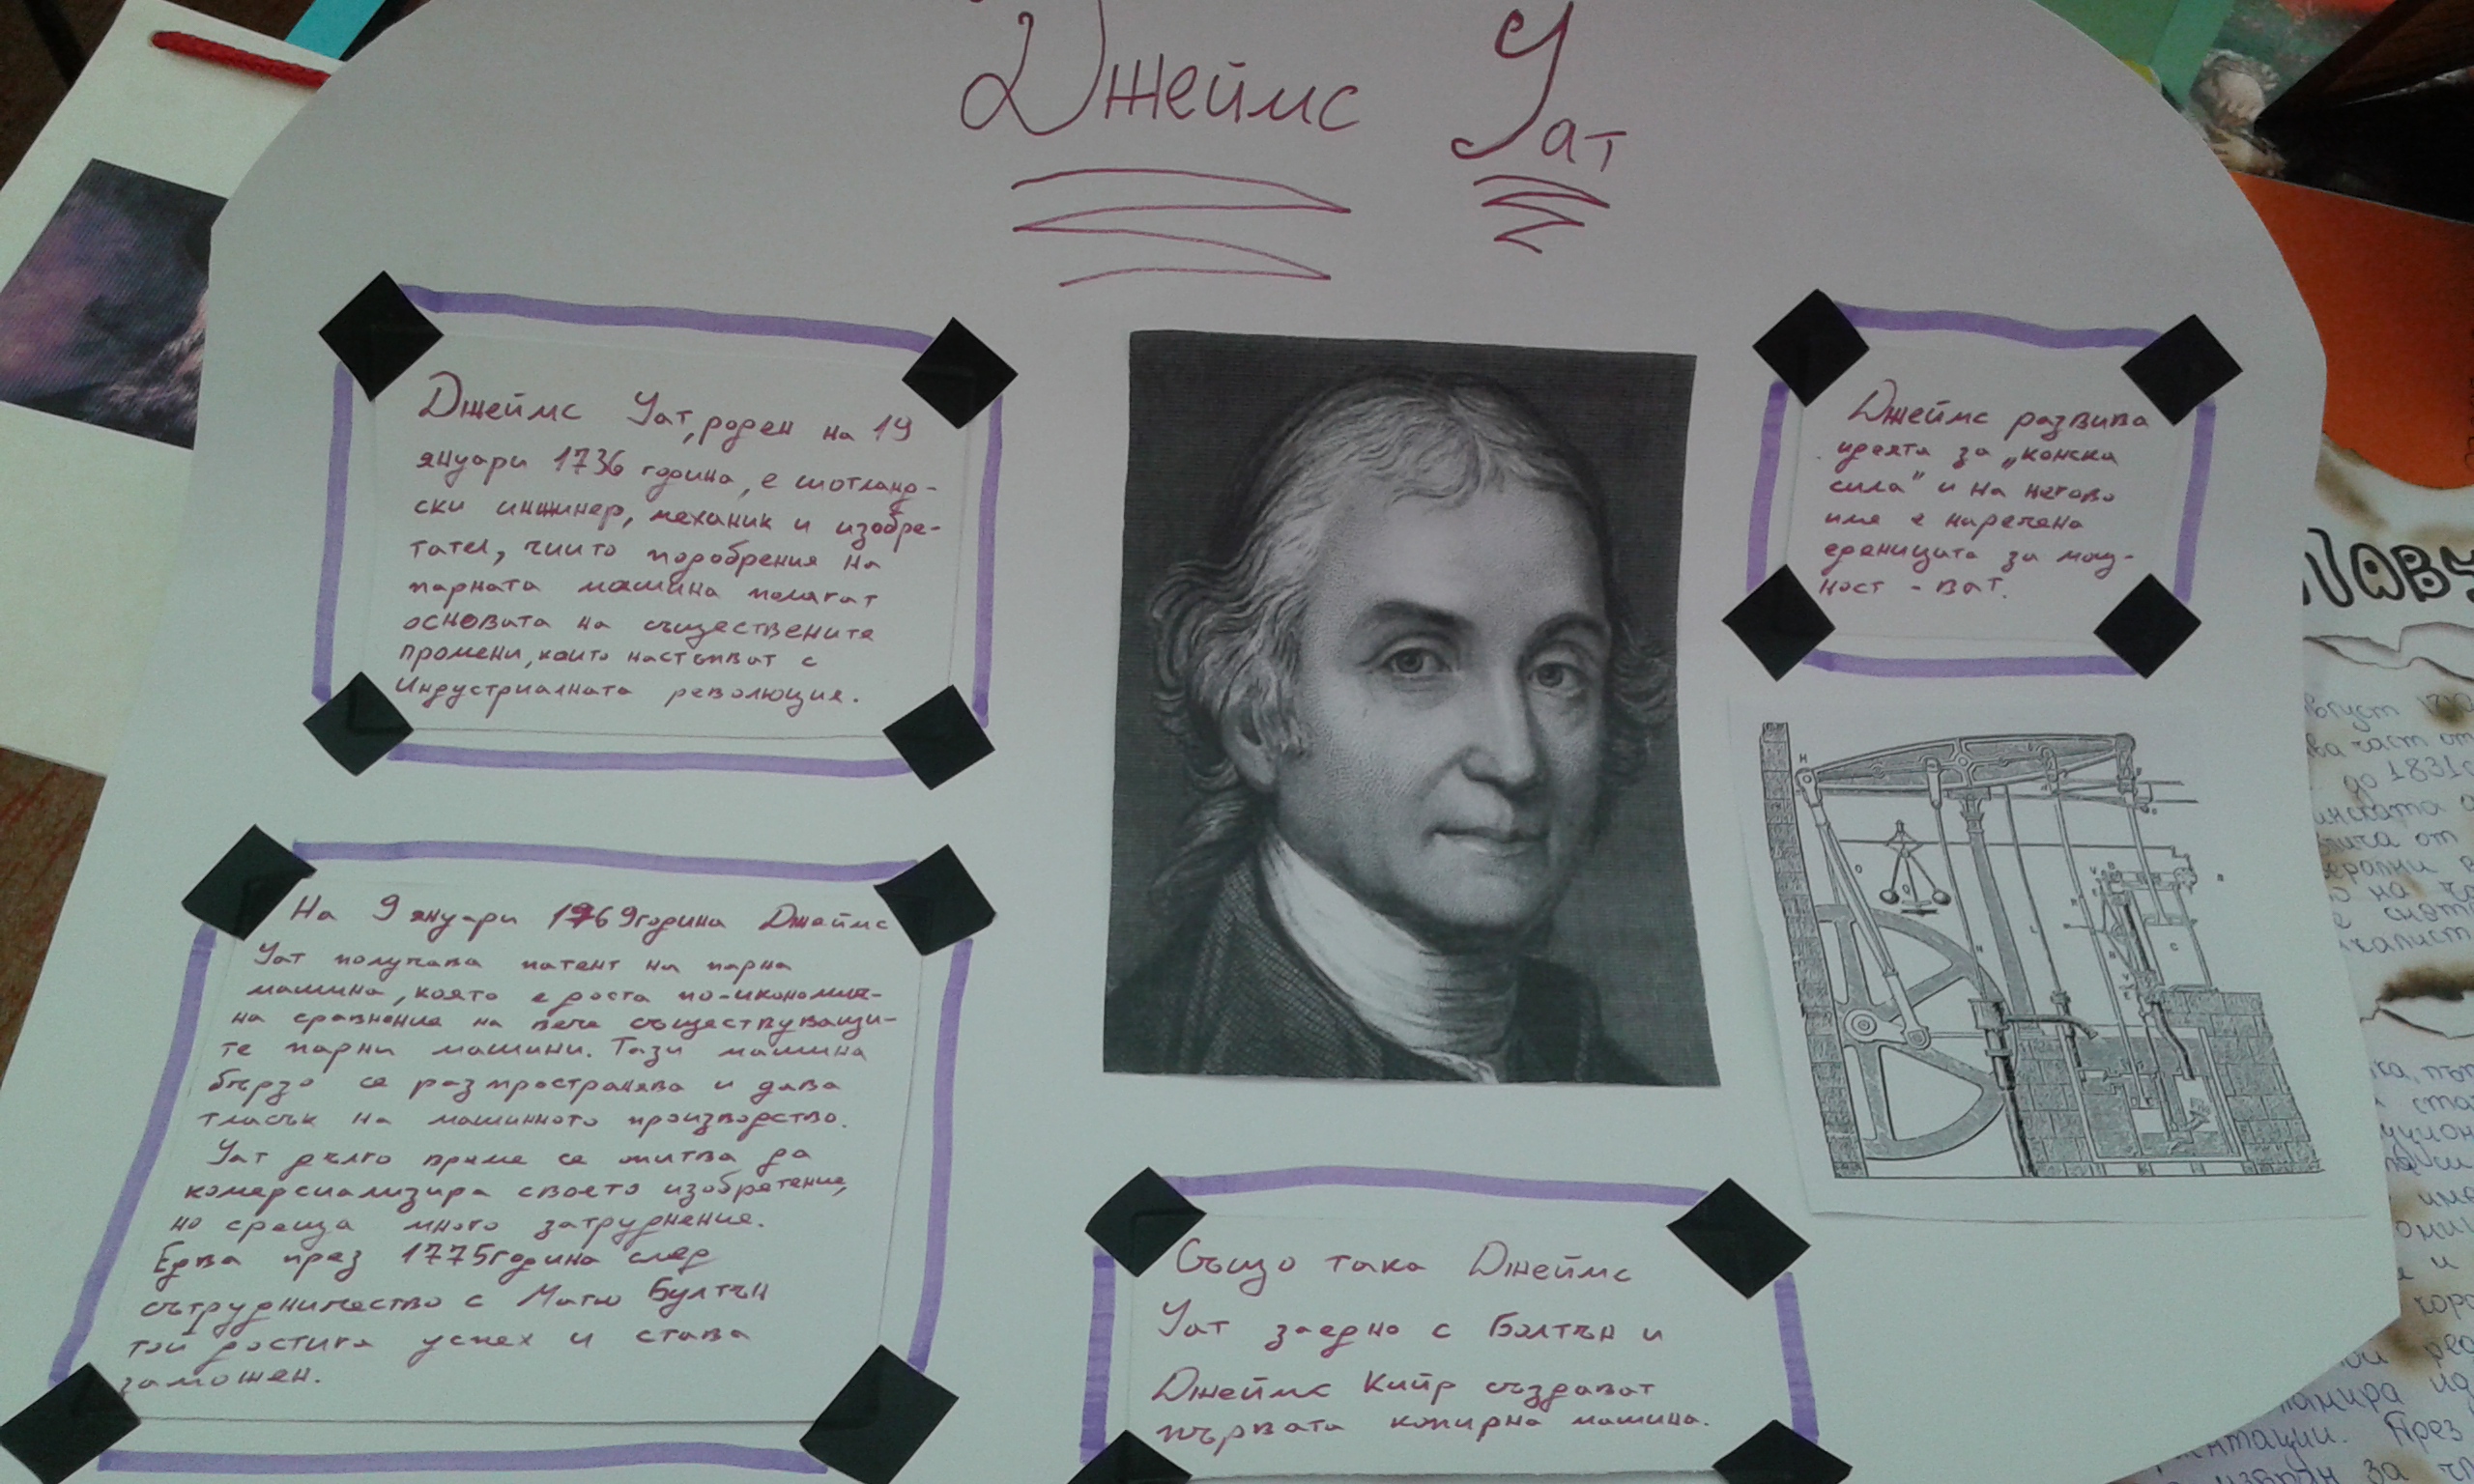 Джеймс Уат
Джеймс Уат, роден на 19
януари 1736 година, е шотланд-
ски инжинер, механик и изобре-
тател, чиито подобрения на
парната машина полагат
основата на съществените
промени, които настъпват с
Индустриалната революция.
Джеймс развива
идеята за „конска
сила" и на негово
име е наречена
единицата за мощ-
ност - ват.
На 9 януари 1769година Джеймс
Уат получава патент на парна
машина, която е доста по-икономич-
на сравнение на вече съществуващи-
те парни машини. Тази машина
бързо се разпространява и дава
тласък на машинното производство.
Уат дълго време се опитва да
комерсиализира своето изобретение,
но среща много затруднение.
Едва през 1775година след
сътрудничество с Матю Бултън
той достига успех и става
заможен.
Също така Джеймс
Уат заедно с Болтън и
Джеймс Кийр създават
първата копирна машина.
до 1831
част от
През